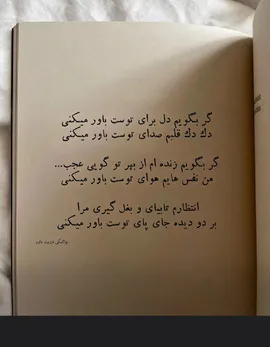 گر بگویم دل برای توست باور میکنی
دك دك قلبم صدای توست باور میکنی
گر بگویم زنده ام از بهر تو گویی عجب...
من نفس هایم هوای توست باور میکنی
انتظارم تابیای و بغل گیری مرا
بر دو دیده جای پای توست باور میکنی